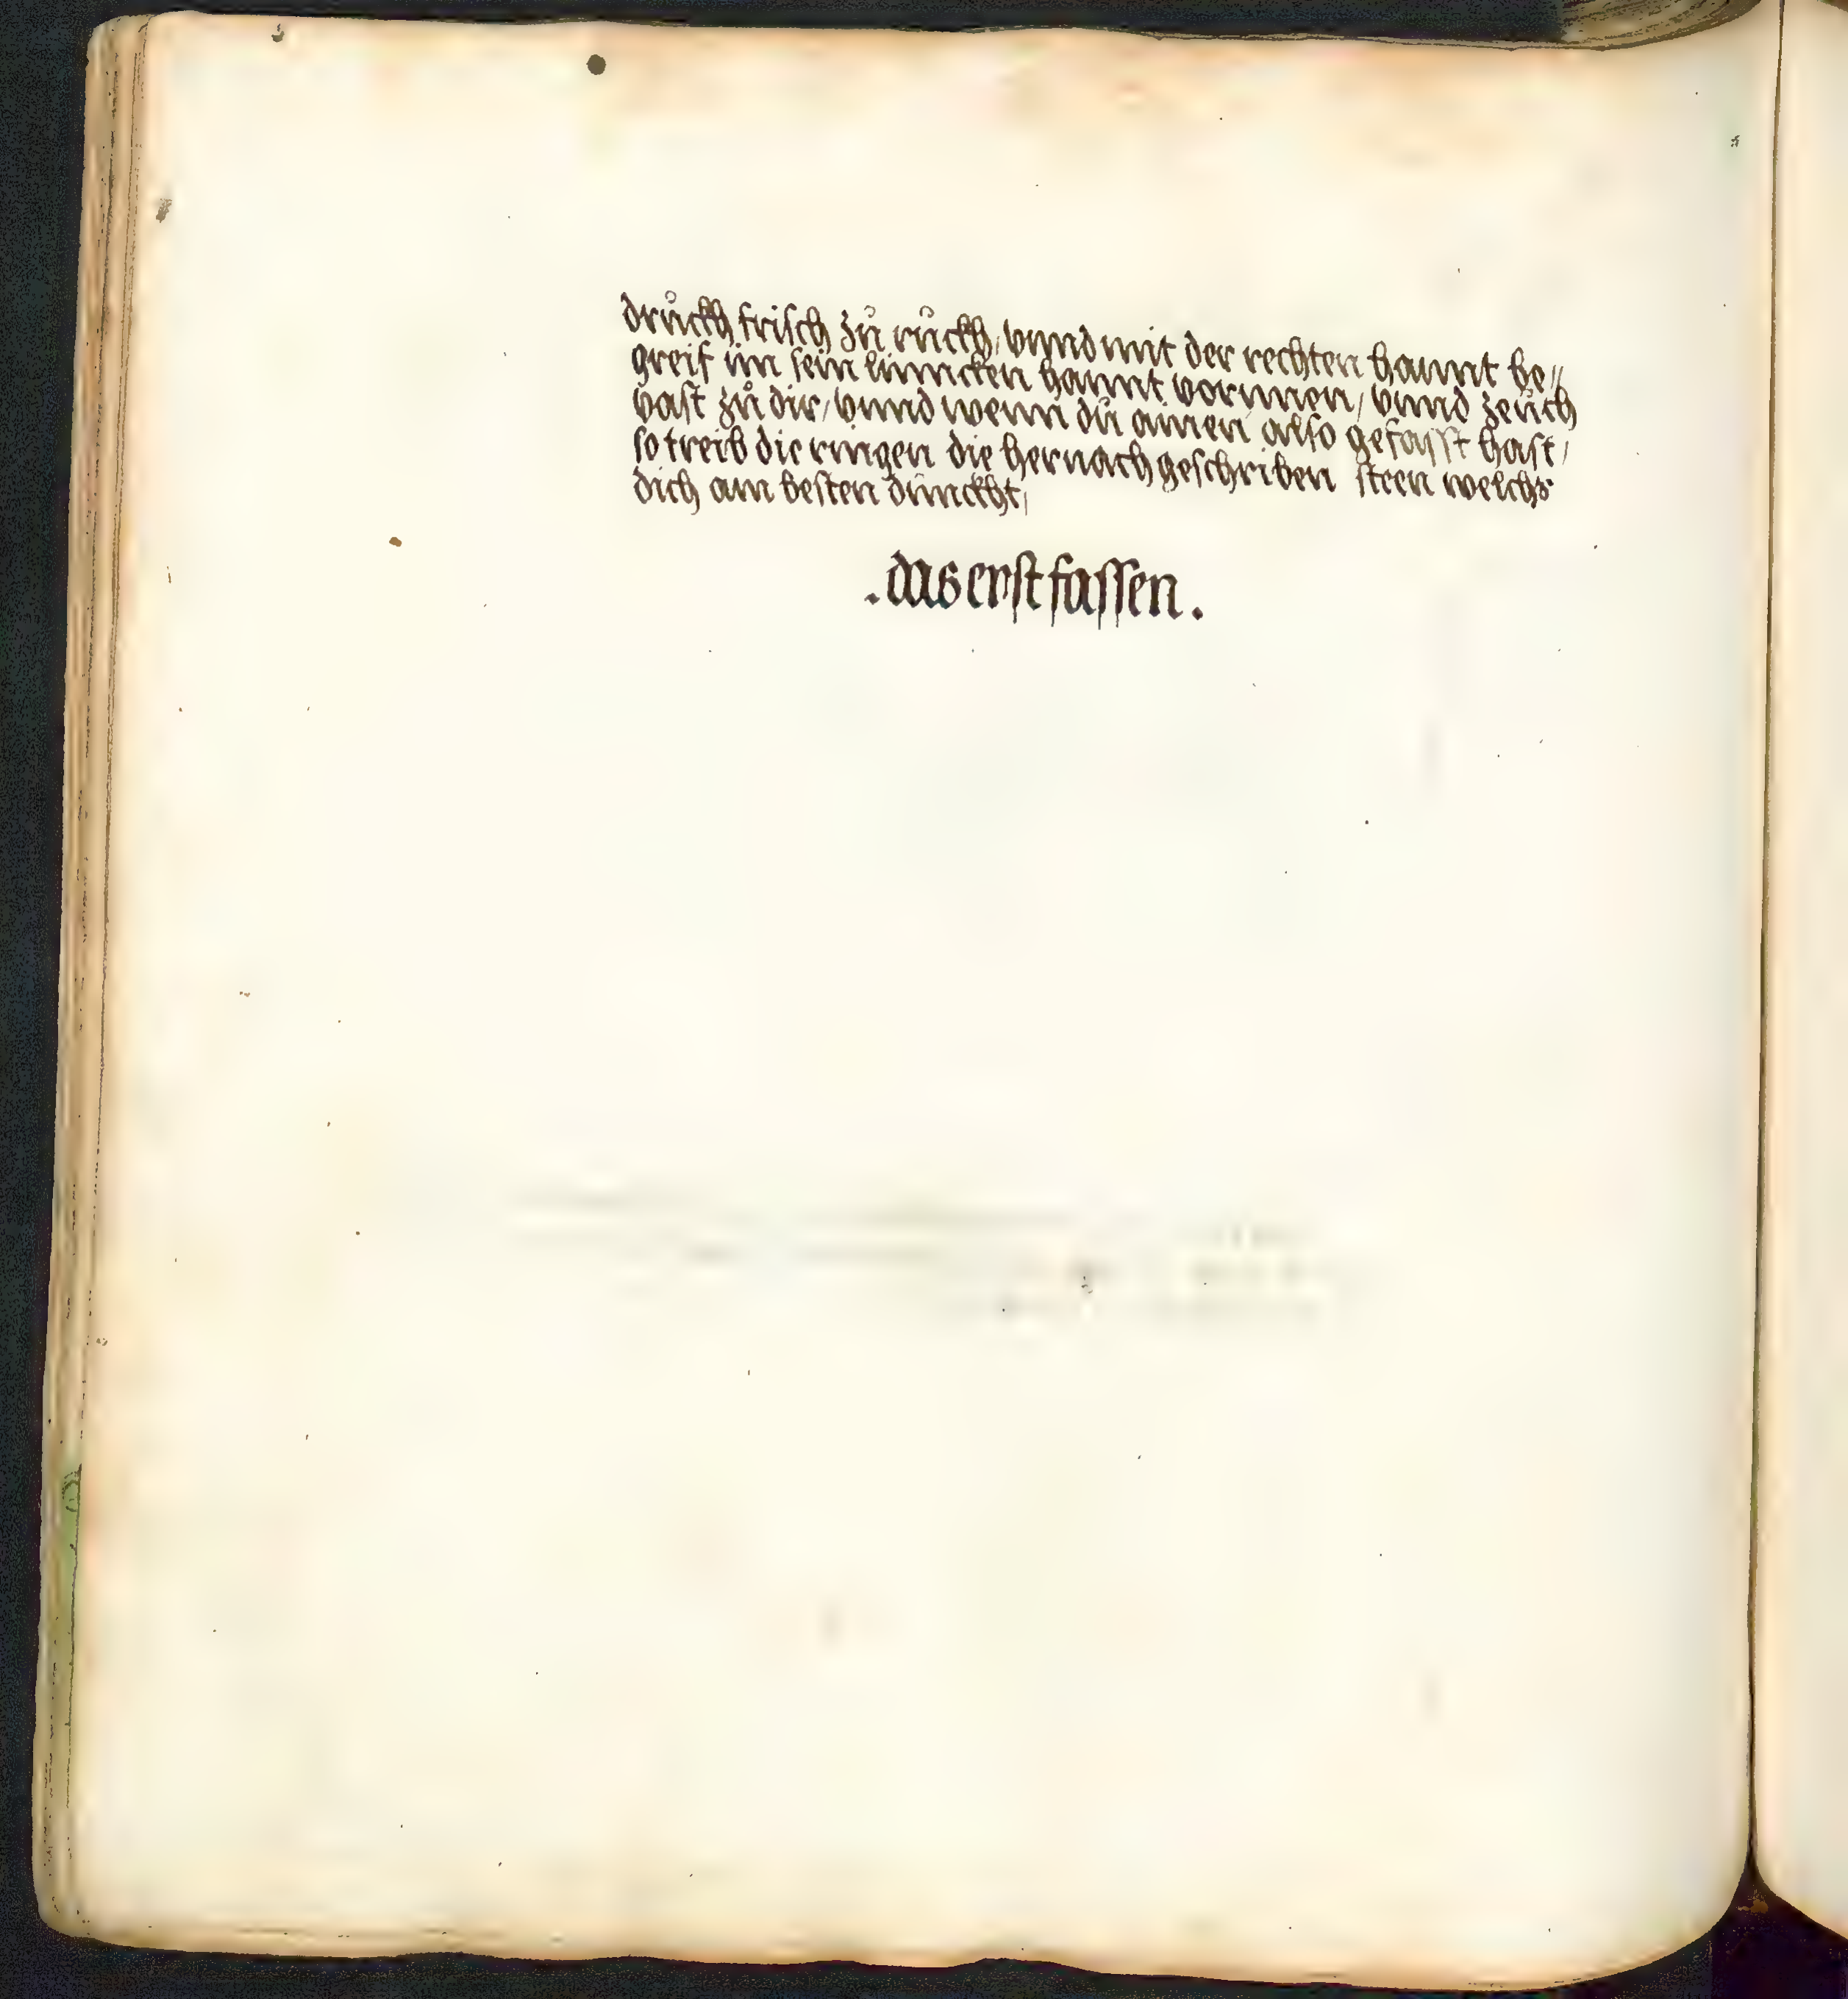 drůckh frisch zů růckh, vnnd mit der rechten hannt be„
greif im sein linncken hannt vornnen, vnnd zeůch
vast zů dir, vnnd wenn dů ainen also gefasst hast,
so treib die ringen die hernach geschriben steen welchs
dich am besten dünckht,
.das erst fassen.